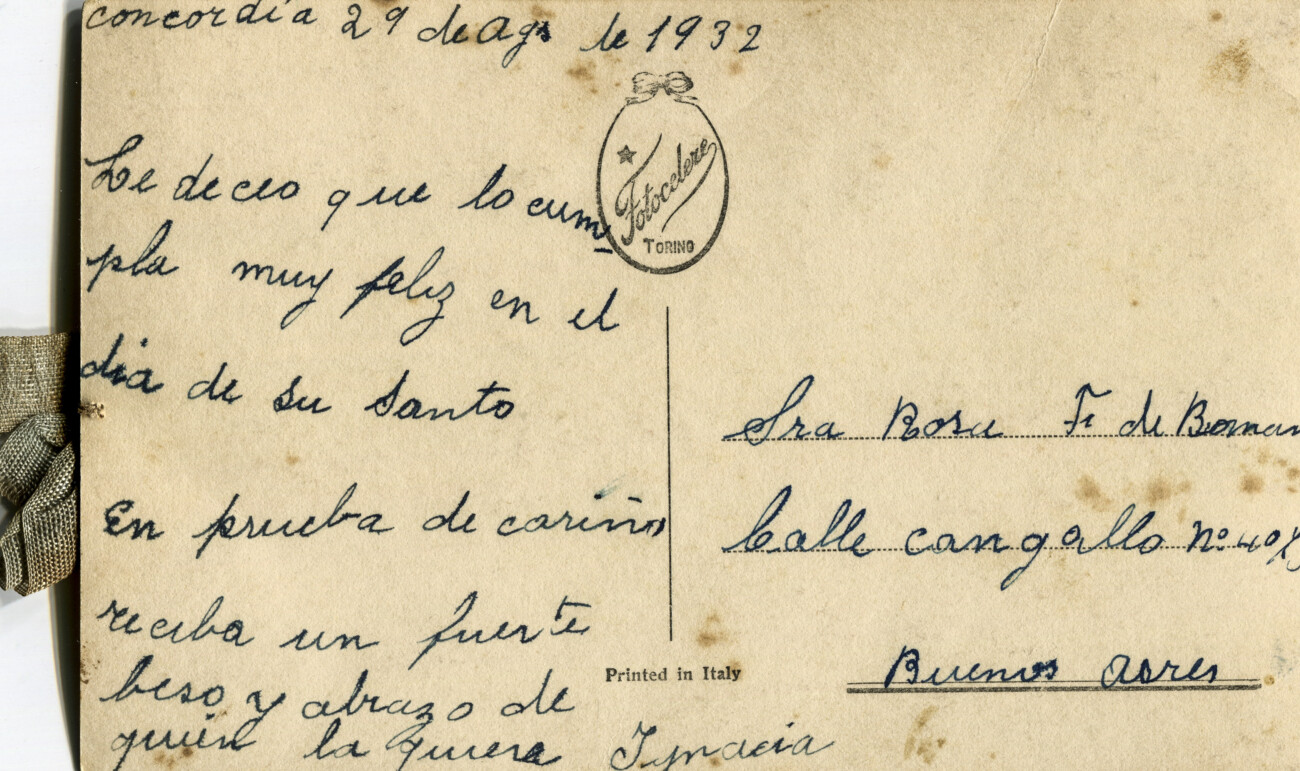 concordia 29 de Ago de 1932
Le deceo que lo cum
pla muy feliz en el
dia de su santo
En prueba de cariño
reciba un fuerte
beso y abrazo de
quien la quiere Ignacia
Fotocelere
TORINO
Printed in Italy
Sra Rosa F. de
Calle cangallo nº
Buenos Aires